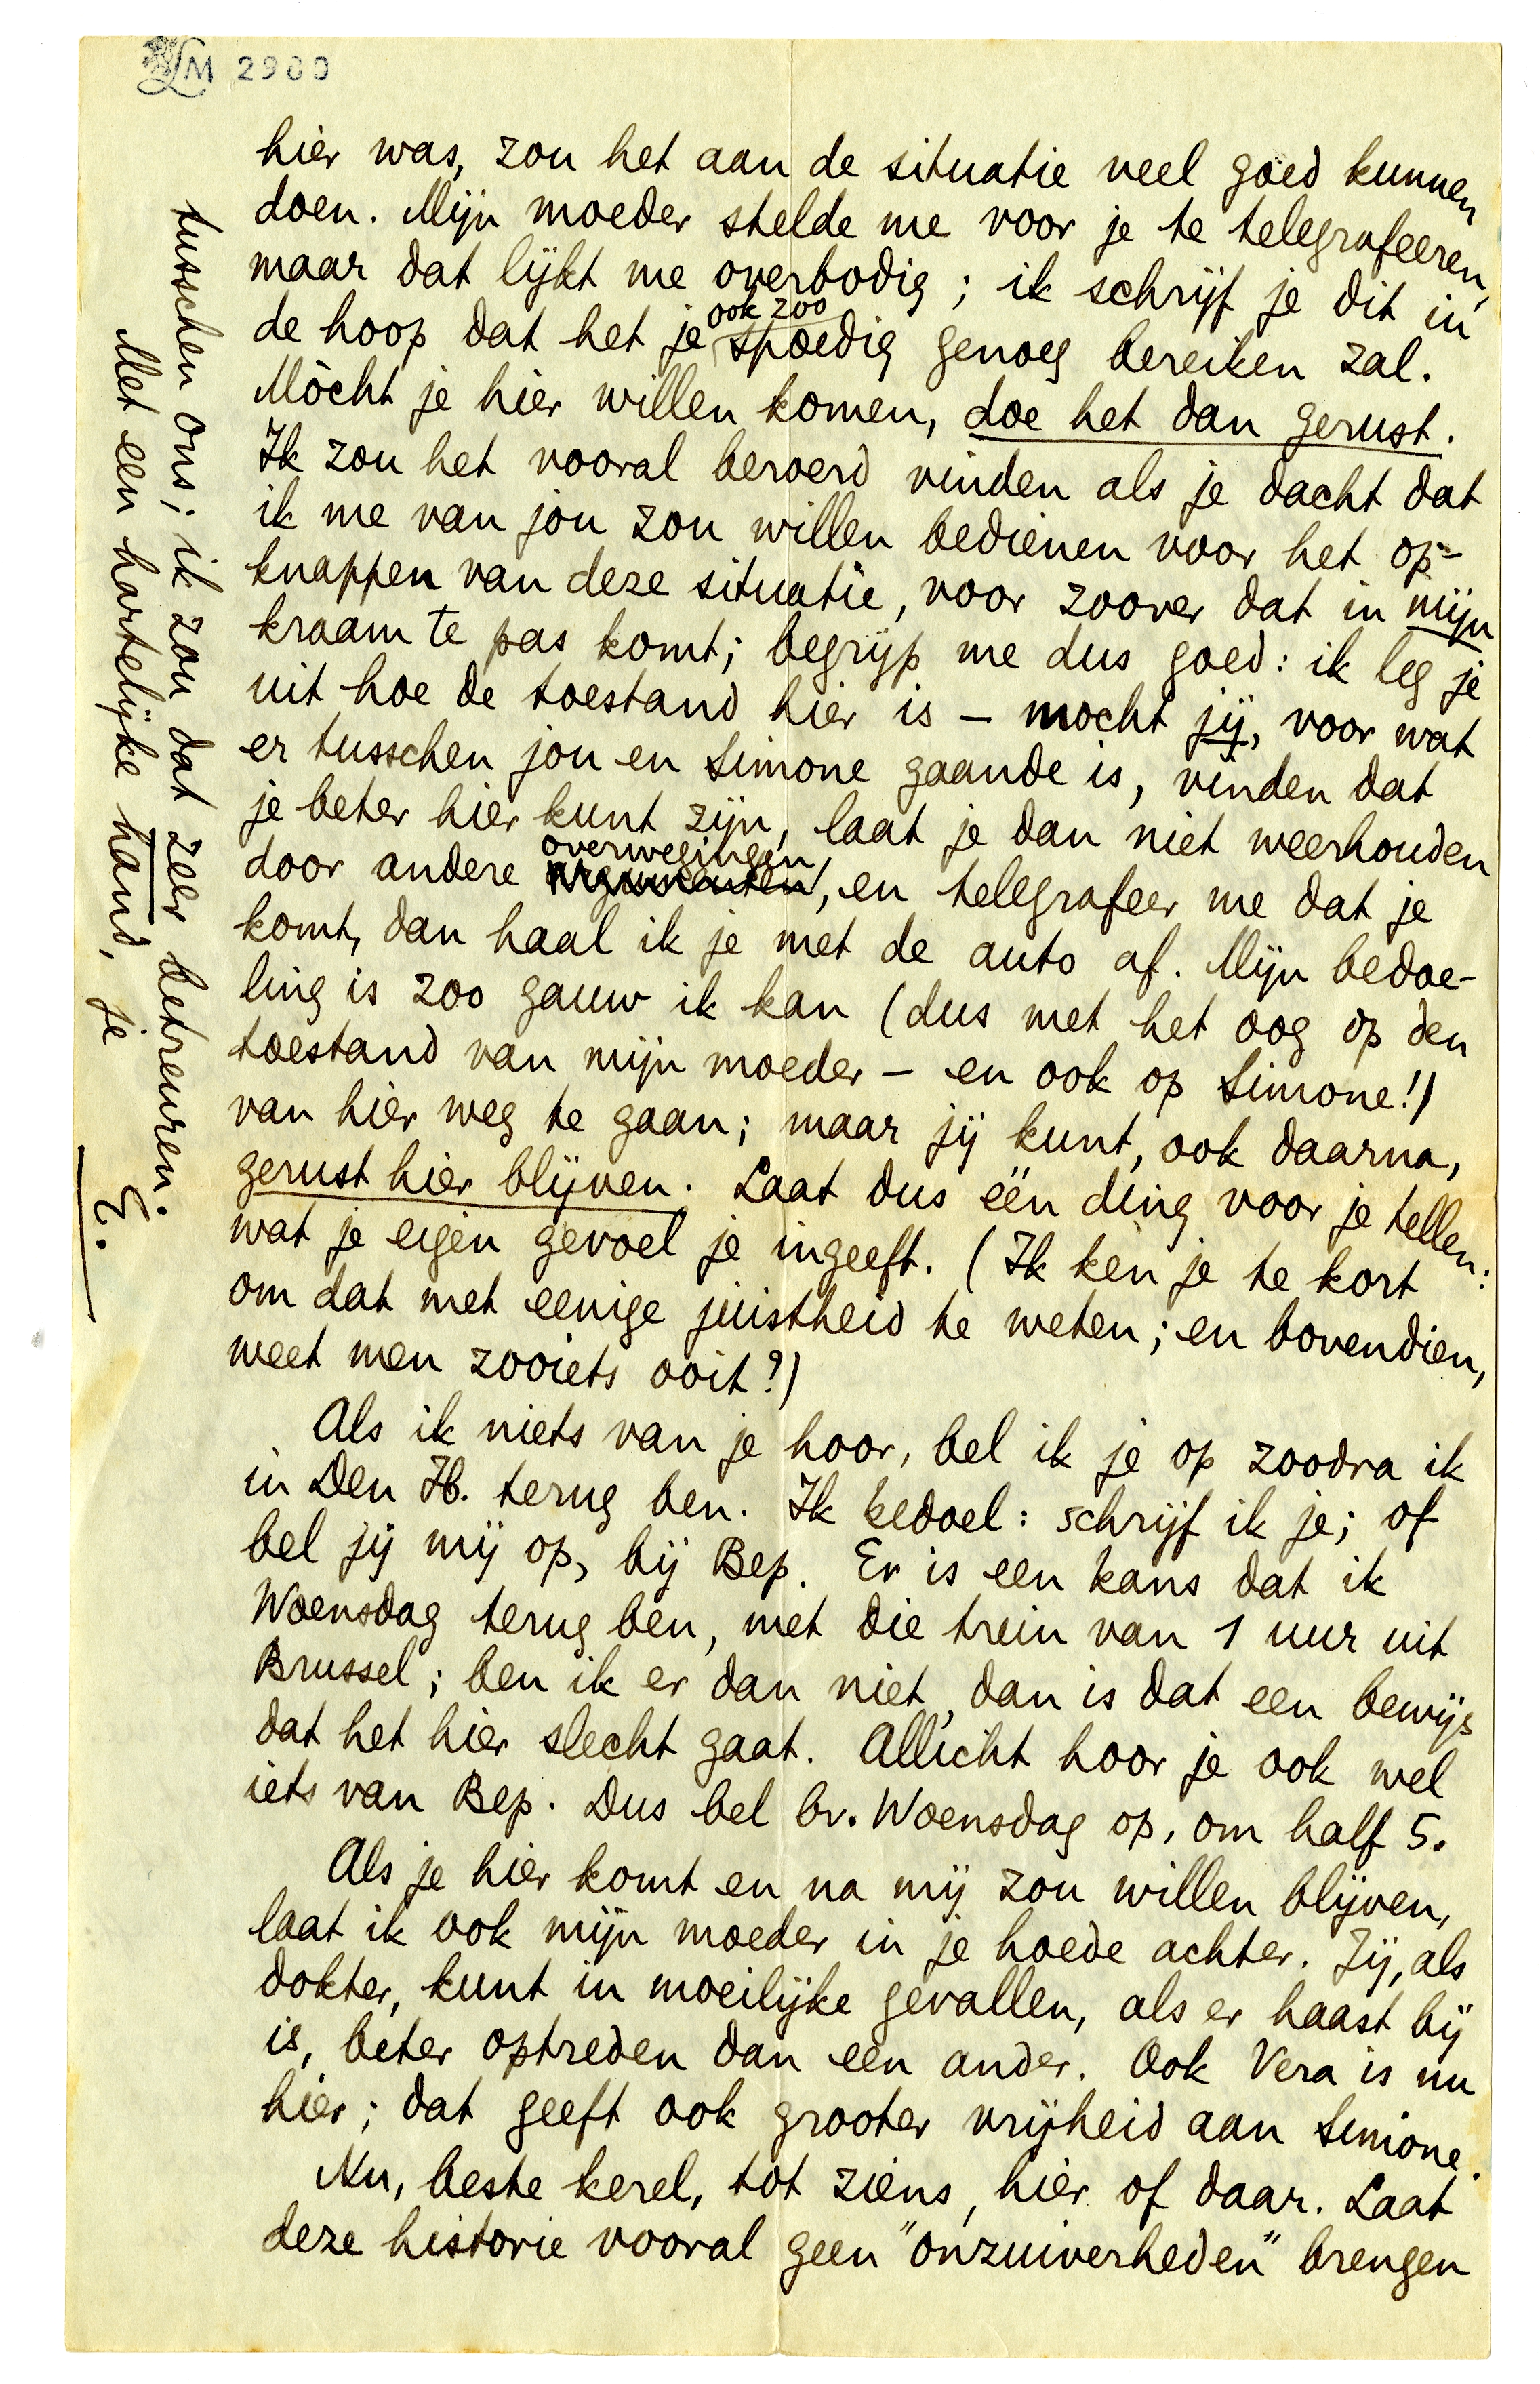 LM 2900
hier was, zou het aan de situatie veel goed kunnen
doen. Mijn moeder stelde me voor je te telegrafeeren,
maar dat lijkt me overbodig; ik schrijf je dit in
ook zoo
de hoop dat het je spoedig genoeg bereiken zal.
Mòcht je hier willen komen, doe het dan gerust.
Ik zou het vooral beroerd vinden als je dacht dat
ik me van jou zou willen bedienen voor het op-
knappen van deze situatie, voor zoover dat in mijn
kraam te pas komt; begrijp me dus goed: ik leg je
uit hoe de toestand hier is – mocht jij, voor wat
er tusschen jou en Simone gaande is, vinden dat
je beter hier kunt zijn, laat je dan niet weerhouden
overwegingen
door andere argumenten, en telegrafeer me dat je
komt, dan haal ik je met de auto af. Mijn bedoe-
ling is zoo gauw ik kan (dus met het oog op den
toestand van mijn moeder – en ook op Simone!)
van hier weg te gaan; maar jij kunt, ook daarna,
gerust hier blijven. Laat dus één ding voor je tellen:
wat je eigen gevoel je ingeeft. (Ik ken je te kort
om dat met eenige juistheid te weten; en bovendien,
weet men zooiets ooit?)
Als ik niets van je hoor, bel ik je op zoodra ik
in Den H. terug ben. Ik bedoel: schrijf ik je; of
bel jij mij op, bij Bep. Er is een kans dat ik
Woensdag terug ben, met die trein van 1 uur uit
Brussel; ben ik er dan niet, dan is dat een bewijs
dat het hier slecht gaat. Allicht hoor je ook wel
iets van Bep. Dus bel bv. Woensdag op, om half 5.
Als je hier komt en na mij zou willen blijven,
laat ik ook mijn moeder in je hoede achter. Jij, als
dokter, kunt in moeilijke gevallen, als er haast bij
is, beter optreden dan een ander. Ook Vera is nu
hier; dat geeft ook grooter vrijheid aan Simone.
Nu, beste kerel, tot ziens, hier of daar. Laat
deze historie vooral geen "onzuiverheden" brengen
tusschen ons; ik zou dat zeer betreuren.
Met een hartelijke hand, je
E.